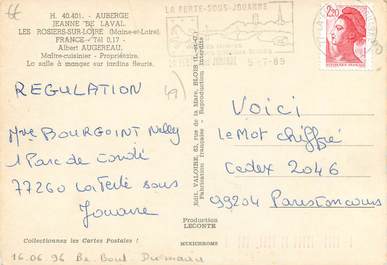 H. 40.401. - AUBERGE
JEANNE DE LAVAL
LES ROSIERS-SUR-LOIRE (Maine-et-Loire)
FRANCE - Tél 0.17 -
Albert AUGEREAU.
Maître-cuisinier - Propriétaire.
La salle à manger sur jardins fleuris.
LA FERTE-SOUS-JOUARRE
5-7-89
2,20
REGULATION
Mme BOURGOINT Nelly
1 Parc de Condé
77260 La Ferté sous
Jouarre
Edit. VALOIRE, 63, rue du Mail, BLOIS (L.-et-C.)
Fabrication française - Reproduction interdite
VOICI
le Mot chiffré
Cedex 2046
99204 Paris Concours
Production
LECONTE
Collectionnez les Cartes Postales !
MEXICHROME
16.06.96